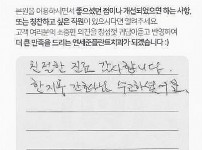 본원을 이용하시면서 좋으셨던 점이나 개선되었으면 하는 사항,
또는 칭찬하고 싶은 직원이 있으시다면 알려주세요.
고객 여러분의 소중한 의견을 귀담아듣고 반영하여
더 큰 만족을 드리는 연세준플란트치과가 되겠습니다 :)
친절한 진료 감사합니다.
한지붕 간호사님 수고하셨어요